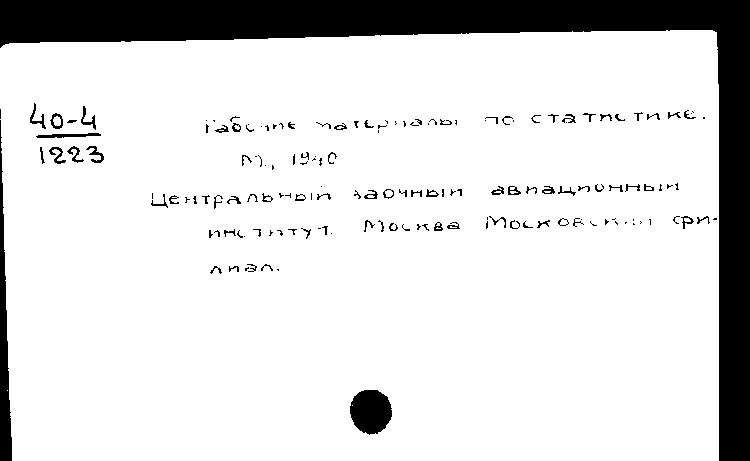 40-4
1223
Рабочие материалы по статистике.
М., 1940
Центральный заочный авиационный
институт. Москва Московский фи-
лиал.